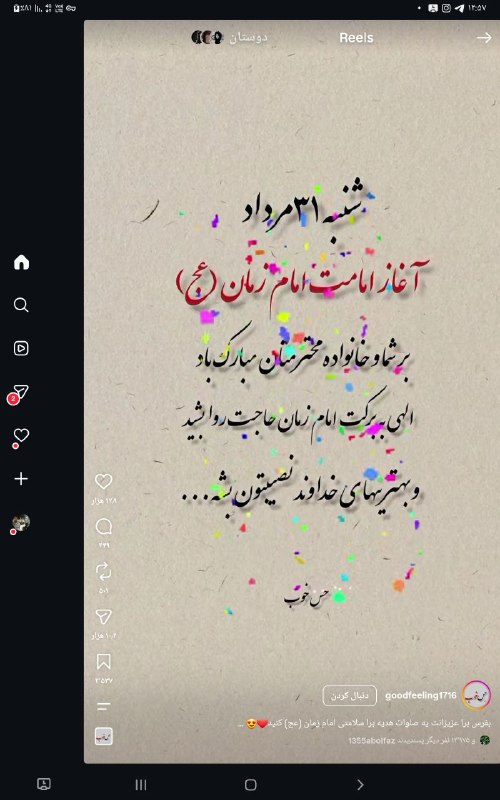 ۱۲:۵۷
٪۸۱
Reels
دوستان
شنبه ۳۱ مرداد
آغاز امامت امام زمان (عج)
بر شما و خانواده محترمتان مبارک باد
الهی به برکت امام زمان حاجت روا بشید
و بهترینهای خداوند نصیبتون بشه...
حس خوب
۱۲۸ هزار
۴۴۹
۵۰۲
۱۰۲ هزار
2
goodfeeling1716
دنبال کردن
بفرس برا عزیزانت یه صلوات هدیه برا سلامتی امام زمان (عج) کنید❤️😍 ...
1355abolfaz و ۱۲۹۷۵ نفر دیگر پسندیدند